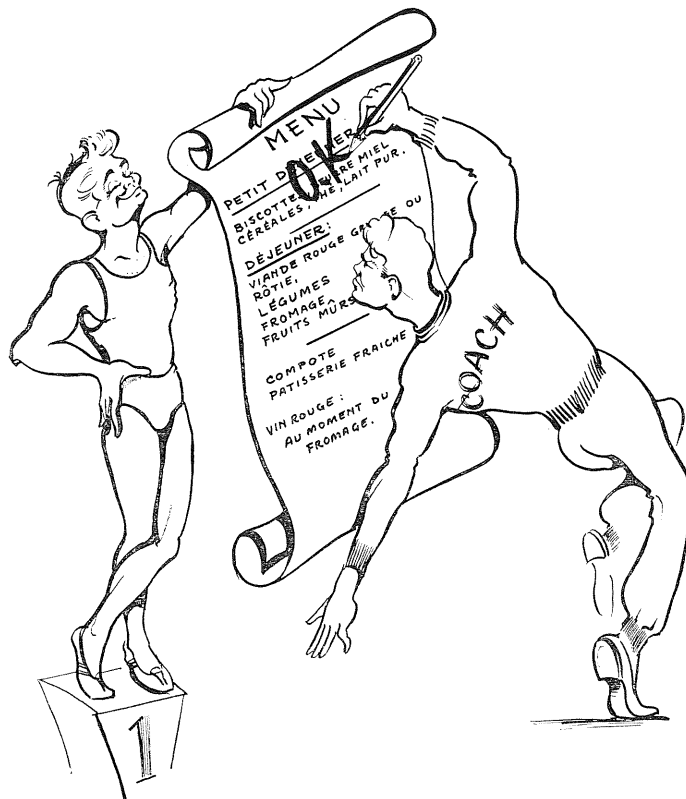 MENU
OK
PETIT DÉJEUNER
BISCOTTES, BEURRE MIEL
CÉRÉALES, THÉ, LAIT PUR.
DÉJEUNER:
VIANDE ROUGE OU
RÔTIE,
LÉGUMES
FROMAGE,
FRUITS MÛRS
COMPOTE
PATISSERIE FRAICHE
VIN ROUGE :
AU MOMENT DU
FROMAGE.
COACH
1